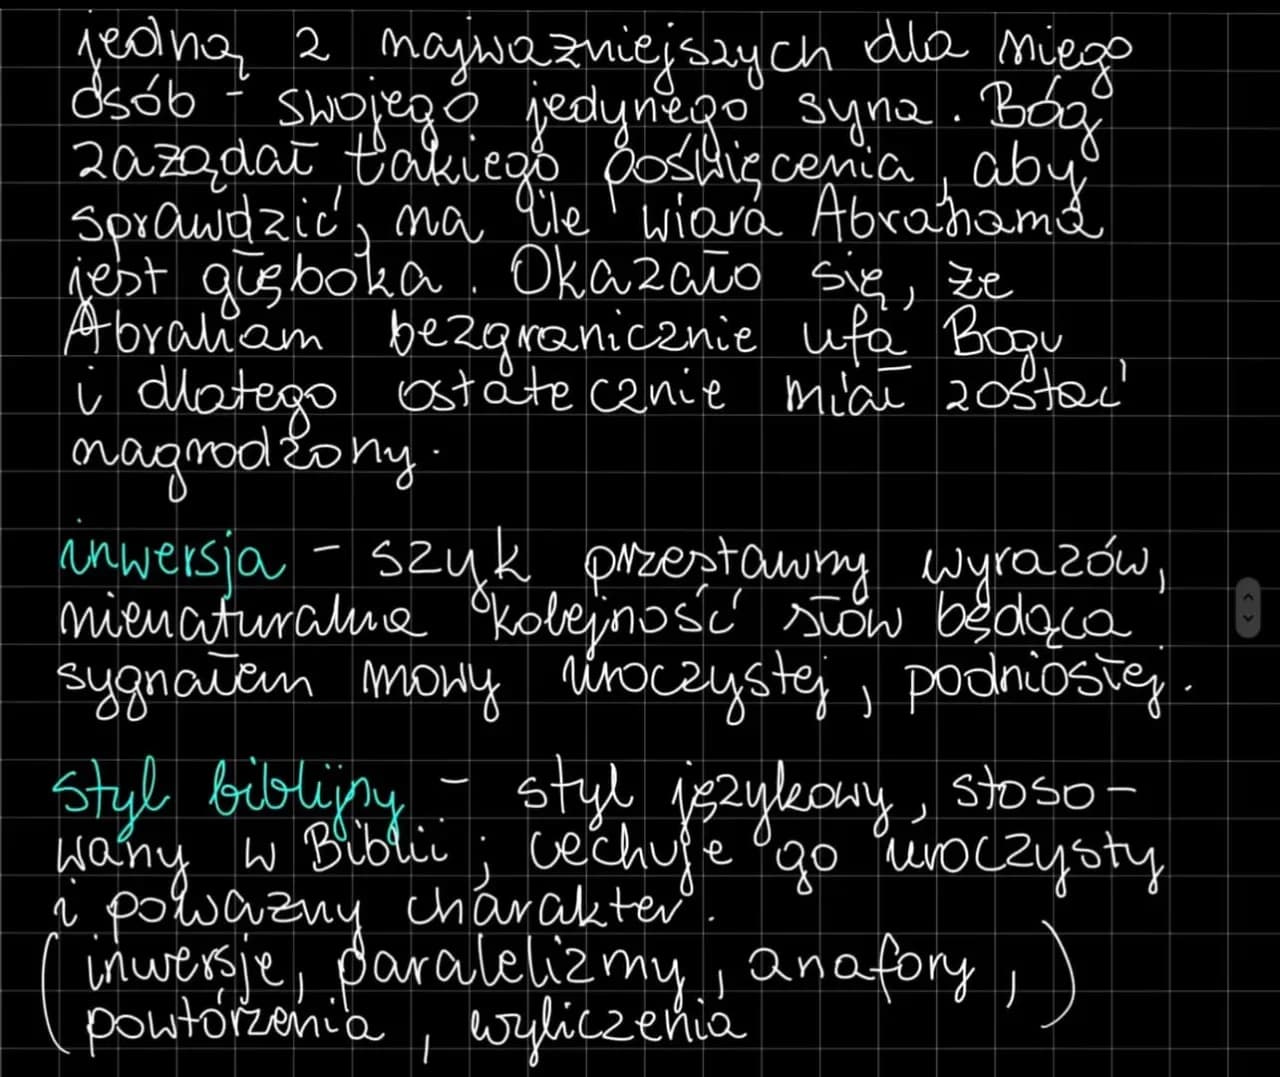 jedną z najważniejszych dla niego
osób - swojego jedynego syna. Bóg
zażądał takiego poświęcenia, aby
sprawdzić, na ile wiara Abrahama
jest głęboka. Okazało się, że
Abraham bezgranicznie ufa Bogu
i dlatego ostatecznie miał zostać
nagrodzony.
inwersja - szyk przestawny wyrazów,
nienaturalna kolejność słów będąca
sygnałem mowy uroczystej, podniosłej.
styl biblijny - styl językowy, stoso-
wany w Biblii; cechuje go uroczysty
i poważny charakter.
(inwersje, paralelizmy, anafory,)
powtórzenia, wyliczenia